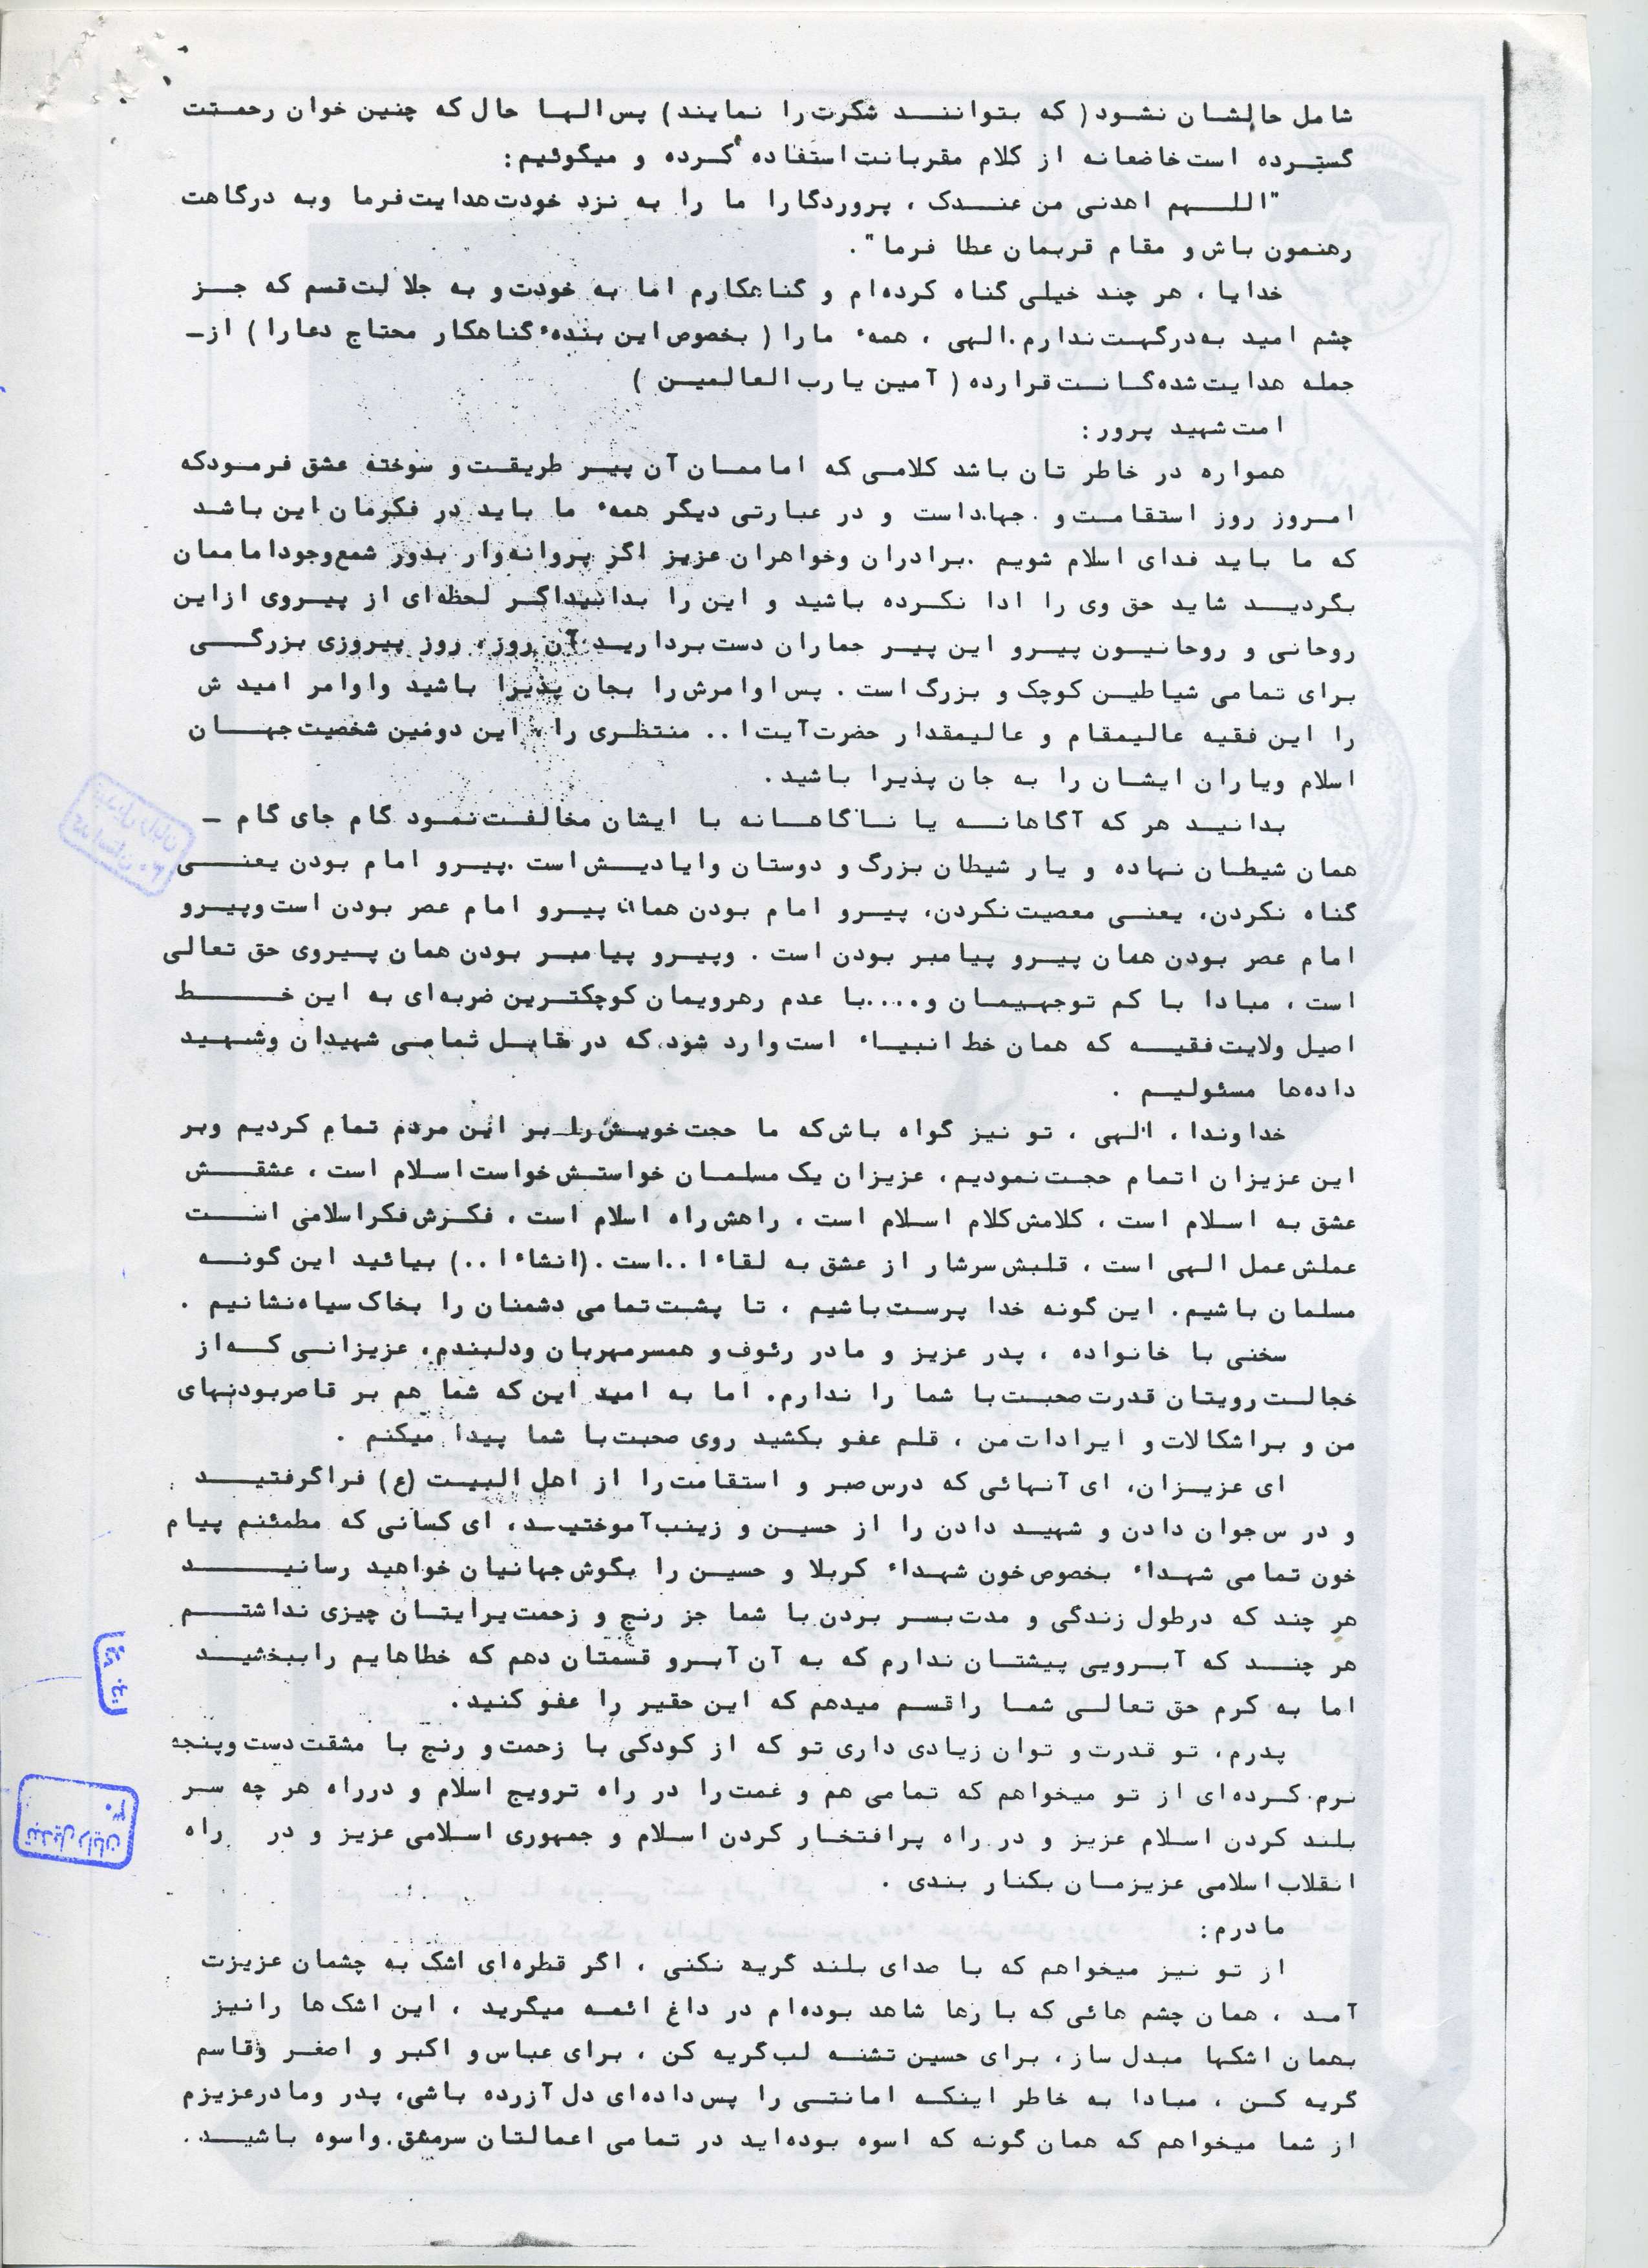 شامل حالشان نشود ( که بتوانند شکرت را نمایند ) پس الها حال که چنین خوان رحمتت
گسترده است خاضعانه از کلام مقربانت استفاده کرده و میگوئیم :
"اللهم اهدنی من عندک ، پروردگارا ما را به نزد خودت هدایت فرما وبه درگاهت
رهنمون باش و مقام قربمان عطا فرما" .
خدایا ، هر چند خیلی گناه کرده‌ام و گناهکارم اما به خودت و به جلالت قسم که جز
چشم امید به درگهت ندارم . الهی ، همهٔ مارا ( بخصوص این بندهٔ گناهکار محتاج دعارا ) از ــ
جمله هدایت شده‌گانت قرارده ( آمین یا رب العالمین )
امت شهید پرور :
همواره در خاطر تان باشد کلامی که امامان آن پیر طریقت و سوخته عشق فرمودکه
امروز روز استقامت و جهاداست و در عبارتی دیگر همهٔ ما باید در فکرمان این باشد
که ما باید فدای اسلام شویم . برادران وخواهران عزیز اگر پروانه‌وار بدور شمع‌وجوداماممان
بگردید شاید حق وی را ادا نکرده باشید و این را بدانیداگر لحظه‌ای از پیروی ازاین
روحانی و روحانیون پیرو این پیر جماران دست بردارید آن روز ، روز پیروزی بزرگی
برای تمامی شیاطین کوچک و بزرگ است . پس اوامرش را بجان پذیرا باشید واوامر امید ش
را این فقیه عالیمقام و عالیمقدار حضرت آیت ا .. منتظری را ، این دومین شخصیت جهان
اسلام ویاران ایشان را به جان پذیرا باشید .
بدانید هر که آگاهانه یا ناگاهانه با ایشان مخالفت نمود گام جای گام ــ
همان شیطان نهاده و یار شیطان بزرگ و دوستان وایادیش است . پیرو امام بودن یعنی
گناه نکردن ، یعنی معصیت نکردن ، پیرو امام بودن همان پیرو امام عصر بودن است وپیرو
امام عصر بودن همان پیرو پیامبر بودن است . وپیرو پیامبر بودن همان پیروی حق تعالی
است ، مبادا با کم توجهیمان و....با عدم رهرویمان کوچکترین ضربه‌ای به این خط
اصیل ولایت فقیه که همان خط انبیاء است وارد شود که در قابل تمامی شهیدان وشهید
داده‌ها مسئولیم .
خداوندا ، الهی ، تو نیز گواه باش که ما حجت خویش را بر این مردم تمام کردیم وبر
این عزیزان اتمام حجت نمودیم ، عزیزان یک مسلمان خواستش خواست اسلام است ، عشقش
عشق به اسلام است ، کلامش کلام اسلام است ، راهش راه اسلام است ، فکرش فکراسلامی است
عملش عمل الهی است ، قلبش سرشار از عشق به لقاء ا ..است . (انشاء ا ..) بیائید این گونه
مسلمان باشیم . این گونه خدا پرست باشیم ، تا پشت تمامی دشمنان را بخاک سیاه نشانیم .
سخنی با خانواده ، پدر عزیز و مادر رئوف و همسرمهربان ودلبندم ، عزیزانی که از
خجالت رویتان قدرت صحبت با شما را ندارم . اما به امید این که شما هم بر قاصربودنهای
من و براشکالات و ایرادات من ، قلم عفو بکشید روی صحبت با شما پیدا میکنم .
ای عزیزان ، ای آنهائی که درس صبر و استقامت را از اهل البیت (ع) فراگرفتید
و در س جوان دادن و شهید دادن را از حسین و زینب آموختید ، ای کسانی که مطمئنم پیام
خون تمامی شهداء بخصوص خون شهداء کربلا و حسین را بگوش جهانیان خواهید رسانید
هر چند که درطول زندگی و مدت بسر بردن با شما جز رنج و زحمت برایتان چیزی نداشتم
هر چند که آبرویی پیشتان ندارم که به آن آبرو قسمتان دهم که خطاهایم راببخشید
اما به کرم حق تعالی شما راقسم میدهم که این حقیر را عفو کنید .
پدرم ، تو قدرت و توان زیادی داری تو که از کودکی با زحمت و رنج با مشقت دست وپنجه
نرم کرده‌ای از تو میخواهم که تمامی هم و غمت را در راه ترویج اسلام و درراه هر چه سر
بلند کردن اسلام عزیز و در راه پرافتخار کردن اسلام و جمهوری اسلامی عزیز و در راه
انقلاب اسلامی عزیزمان بکنار بندی .
مادرم :
از تو نیز میخواهم که با صدای بلند گریه نکنی ، اگر قطره‌ای اشک به چشمان عزیزت
آمد ، همان چشم هائی که بارها شاهد بوده‌ام در داغ ائمه میگرید ، این اشک‌ها رانیز
بهمان اشکها مبدل ساز ، برای حسین تشنه لب گریه کن ، برای عباس و اکبر و اصغر وقاسم
گریه کن ، مبادا به خاطر اینکه امانتی را پس داده‌ای دل آزرده باشی ، پدر ومادرعزیزم
از شما میخواهم که همان گونه که اسوه بوده‌اید در تمامی اعمالتان سرمشق واسوه باشید .